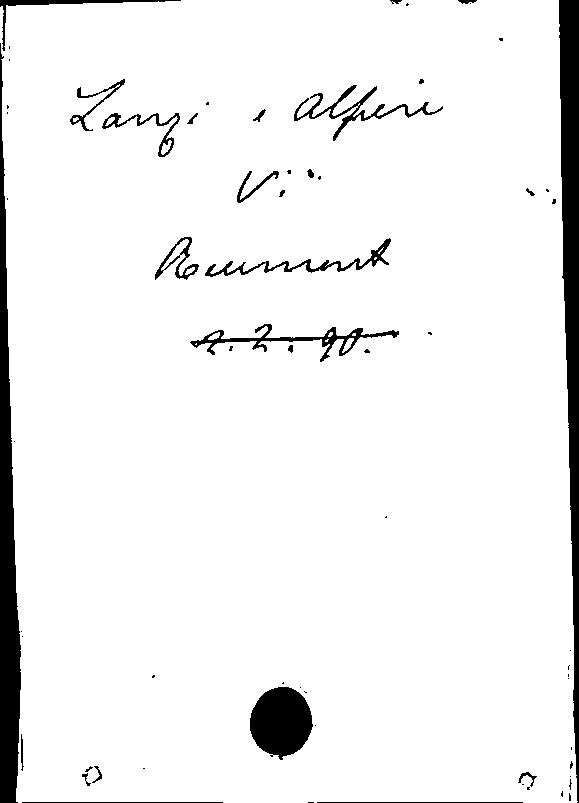 Lanzi e Alfieri
V.
Reumont
2.2.90.